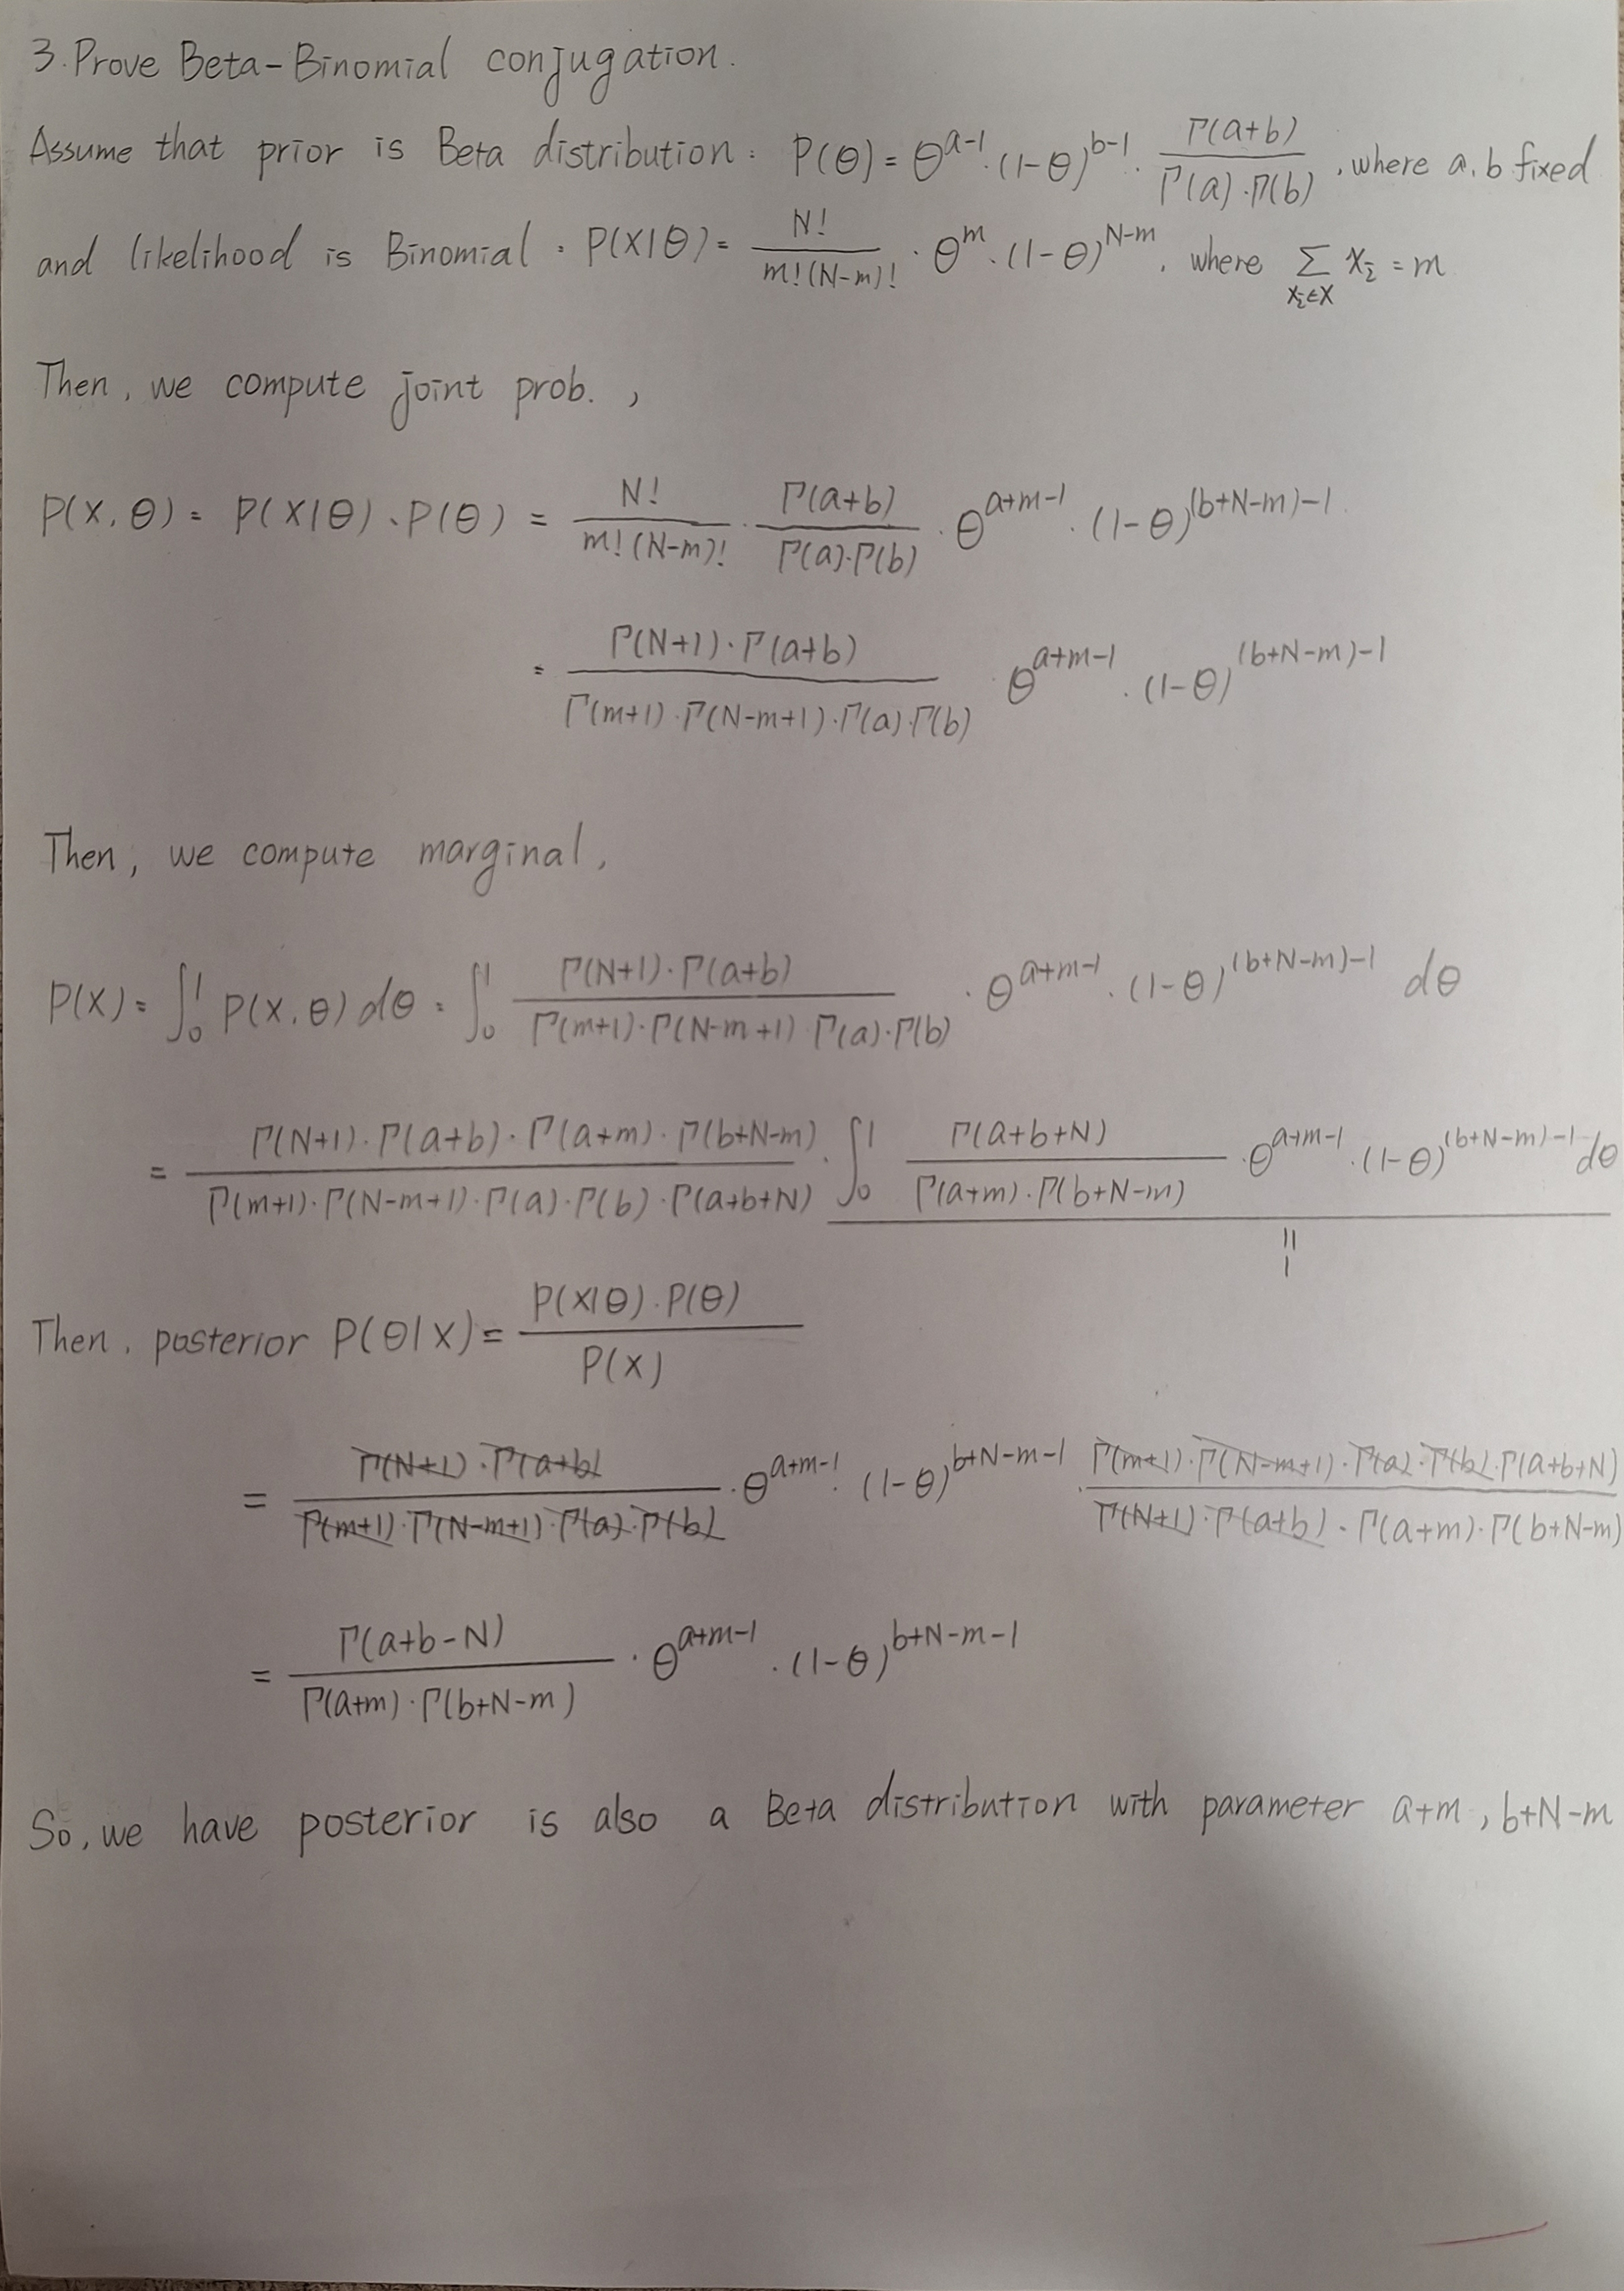 3. Prove Beta-Binomial conjugation.
Assume that prior is Beta distribution : P(θ) = θ^{a-1} · (1-θ)^{b-1} · \frac{Γ(a+b)}{Γ(a)·Γ(b)} , where a, b fixed
and likelihood is Binomial : P(X|θ) = \frac{N!}{m!(N-m)!} · θ^m · (1-θ)^{N-m} , where \sum_{x_i∈X} x_i = m
Then, we compute joint prob. ,
P(X, θ) = P(X|θ) · P(θ) = \frac{N!}{m!(N-m)!} · \frac{Γ(a+b)}{Γ(a)·Γ(b)} · θ^{a+m-1} · (1-θ)^{(b+N-m)-1}
= \frac{Γ(N+1)·Γ(a+b)}{Γ(m+1)·Γ(N-m+1)·Γ(a)·Γ(b)} · θ^{a+m-1} · (1-θ)^{(b+N-m)-1}
Then, we compute marginal,
P(X) = ∫_0^1 P(X, θ) dθ = ∫_0^1 \frac{Γ(N+1)·Γ(a+b)}{Γ(m+1)·Γ(N-m+1)·Γ(a)·Γ(b)} · θ^{a+m-1} · (1-θ)^{(b+N-m)-1} dθ
= \frac{Γ(N+1)·Γ(a+b)·Γ(a+m)·Γ(b+N-m)}{Γ(m+1)·Γ(N-m+1)·Γ(a)·Γ(b)·Γ(a+b+N)} · ∫_0^1 \frac{Γ(a+b+N)}{Γ(a+m)·Γ(b+N-m)} · θ^{a+m-1} · (1-θ)^{(b+N-m)-1} dθ
= 1
Then, posterior P(θ|X) = \frac{P(X|θ)·P(θ)}{P(X)}
= \frac{Γ(N+1)·Γ(a+b)}{Γ(m+1)·Γ(N-m+1)·Γ(a)·Γ(b)} · θ^{a+m-1} · (1-θ)^{b+N-m-1} · \frac{Γ(m+1)·Γ(N-m+1)·Γ(a)·Γ(b)·Γ(a+b+N)}{Γ(N+1)·Γ(a+b)·Γ(a+m)·Γ(b+N-m)}
= \frac{Γ(a+b-N)}{Γ(a+m)·Γ(b+N-m)} · θ^{a+m-1} · (1-θ)^{b+N-m-1}
So, we have posterior is also a Beta distribution with parameter a+m, b+N-m